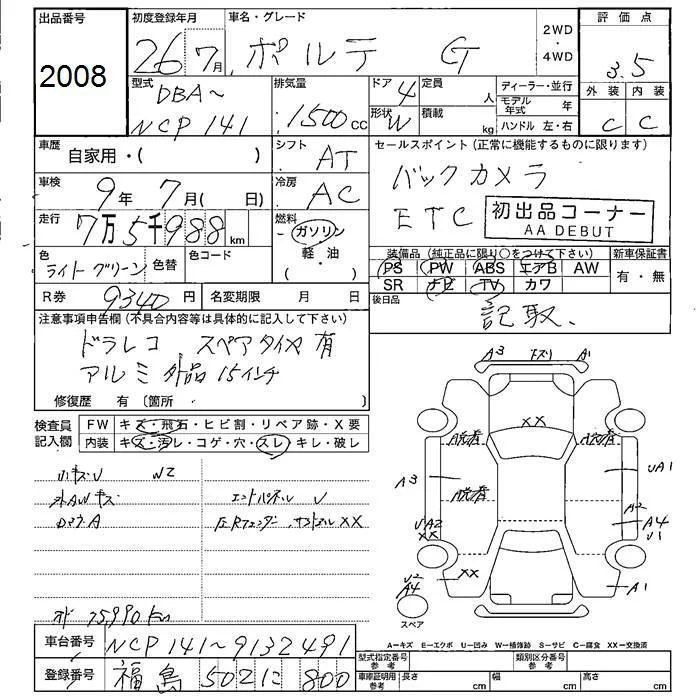 出品番号 初度登録年月 車名・グレード 評価点
2008 26 7月 ポルテ G 2WD・4WD 3.5
型式 DBA~ NCP141
排気量 1500cc
ドア 4 定員 人
形状 W 積載 kg
ディーラー・並行
モデル年式 年
ハンドル 左・右
外装 内装
C C
車歴 自家用・( )
シフト AT
セールスポイント(正常に機能するものに限ります)
バックカメラ
ETC
初出品コーナー
AA DEBUT
車検 9年 7月( 日)
冷房 AC
走行 7万5千988km
燃料 ガソリン・軽・油・( )
色 ライトグリーン 色替 色コード
装備品(純正品に限り○をつけて下さい) 新車保証書
PS PW ABS エアB AW 有・無
SR ナビ TV カワ
R券 9340円 名変期限 月 日
後日品
記取、
注意事項申告欄(不具合内容等は具体的に記入して下さい)
ドラレコ スペアタイヤ有
アルミ外品 15インチ
修復歴 有(箇所 )
検査員記入欄 FW キズ・飛石・ヒビ割・リペア跡・X要
内装 キズ・汚レ・コゲ・穴・スレ・キレ・破レ
小キズU W2
外AWキズ エンドパネル U
ロッカA 左Rフェンダー、サイドシル XX
オド 75,990km
A3 キズリ A1
XX
脱着 脱着
A3 脱着 UA1
UA2 XX A2 A4 U1
XX U2 A4 A1
スペア
A=キズ E=エクボ U=凹み W=補修跡 S=サビ C=腐食 XX=交換済
車台番号 NCP141~9132491
型式指定番号 参考 類別区分番号 参考
登録番号 福島 502 に 800
車庫証明用 参考 長さ cm 幅 cm 高さ cm